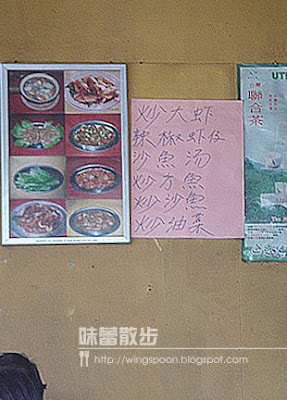 炒大虾
辣椒大虾仔
沙鱼汤
炒方魚
炒沙魚
炒油菜
UTE
聯合茶
味蕾散步
http://wingspoon.blogspot.com